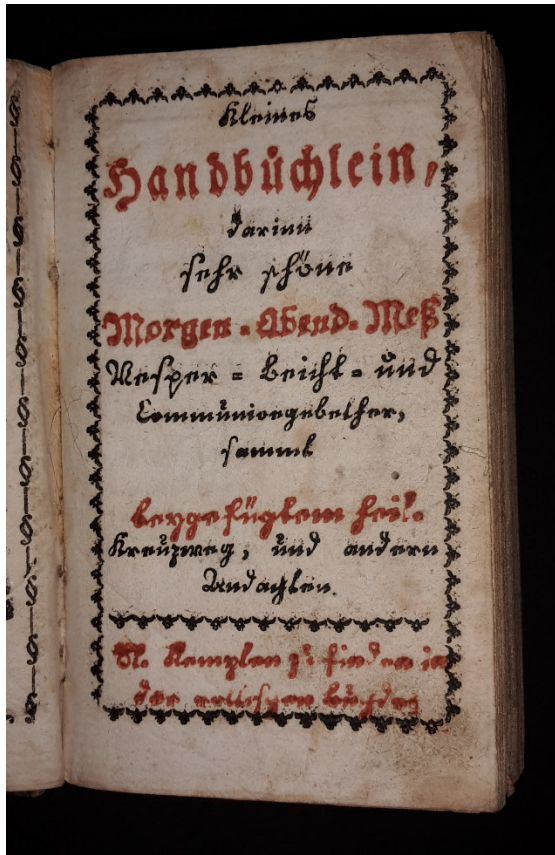 Kleines
Handbüchlein,
darinn
sehr schöne
Morgen-Abend-Meß
Vesper-Beicht-und
Communiongebether,
sammt
beygefügtem heil.
Kreuzweg, und andern
Andachten.
Kempten zu finden in
der